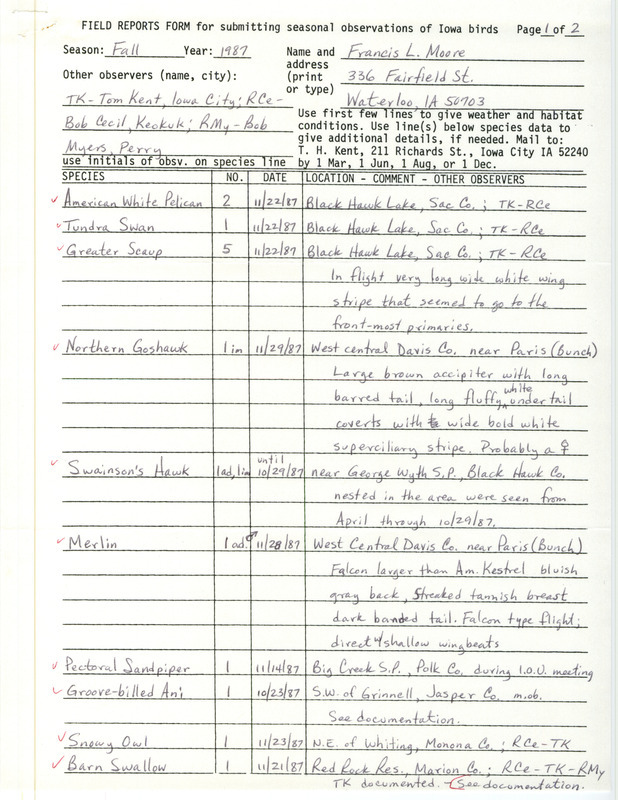 FIELD REPORTS FORM for submitting seasonal observations of Iowa birds Page 1 of 2
Season: Fall Year: 1987 Name and Francis L. Moore
address
Other observers (name, city): (print 336 Fairfield St.
or type)
TK-Tom Kent, Iowa City; RCe- Waterloo, IA 50703
Bob Cecil, Keokuk; RMy-Bob
Myers, Perry
use initials of obsv. on species line
Use first few lines to give weather and habitat
conditions. Use line(s) below species data to
give additional details, if needed. Mail to:
T. H. Kent, 211 Richards St., Iowa City IA 52240
by 1 Mar, 1 Jun, 1 Aug, or 1 Dec.
SPECIES NO. DATE LOCATION - COMMENT - OTHER OBSERVERS
✓ American White Pelican 2 11/22/87 Black Hawk Lake, Sac Co.; TK-RCe
✓ Tundra Swan 1 11/22/87 Black Hawk Lake, Sac Co.; TK-RCe
✓ Greater Scaup 5 11/22/87 Black Hawk Lake, Sac Co.; TK-RCe
In flight very long wide white wing
stripe that seemed to go to the
front-most primaries.
✓ Northern Goshawk 1 im 11/29/87 West central Davis Co. near Paris (Bunch)
Large brown accipiter with long
barred tail, long fluffy white undertail
coverts with wide bold white
superciliary stripe. Probably a ♀
✓ Swainson's Hawk 1ad, 1im until 10/29/87 near George Wyth S.P., Black Hawk Co.
nested in the area were seen from
April through 10/29/87.
✓ Merlin 1 ad. ♂ 11/28/87 West Central Davis Co. near Paris (Bunch)
Falcon larger than Am. Kestrel bluish
gray back, Streaked tannish breast
dark banded tail. Falcon type flight;
direct w/shallow wingbeats
✓ Pectoral Sandpiper 1 11/14/87 Big Creek S.P., Polk Co, during I.O.U. meeting
✓ Groove-billed Ani 1 10/23/87 S.W. of Grinnell, Jasper Co. m.ob.
See documentation.
✓ Snowy Owl 1 11/23/87 N.E. of Whiting, Monona Co.; RCe-TK
✓ Barn Swallow 1 11/21/87 Red Rock Res., Marion Co.; RCe-TK-RMy
TK documented. See documentation.